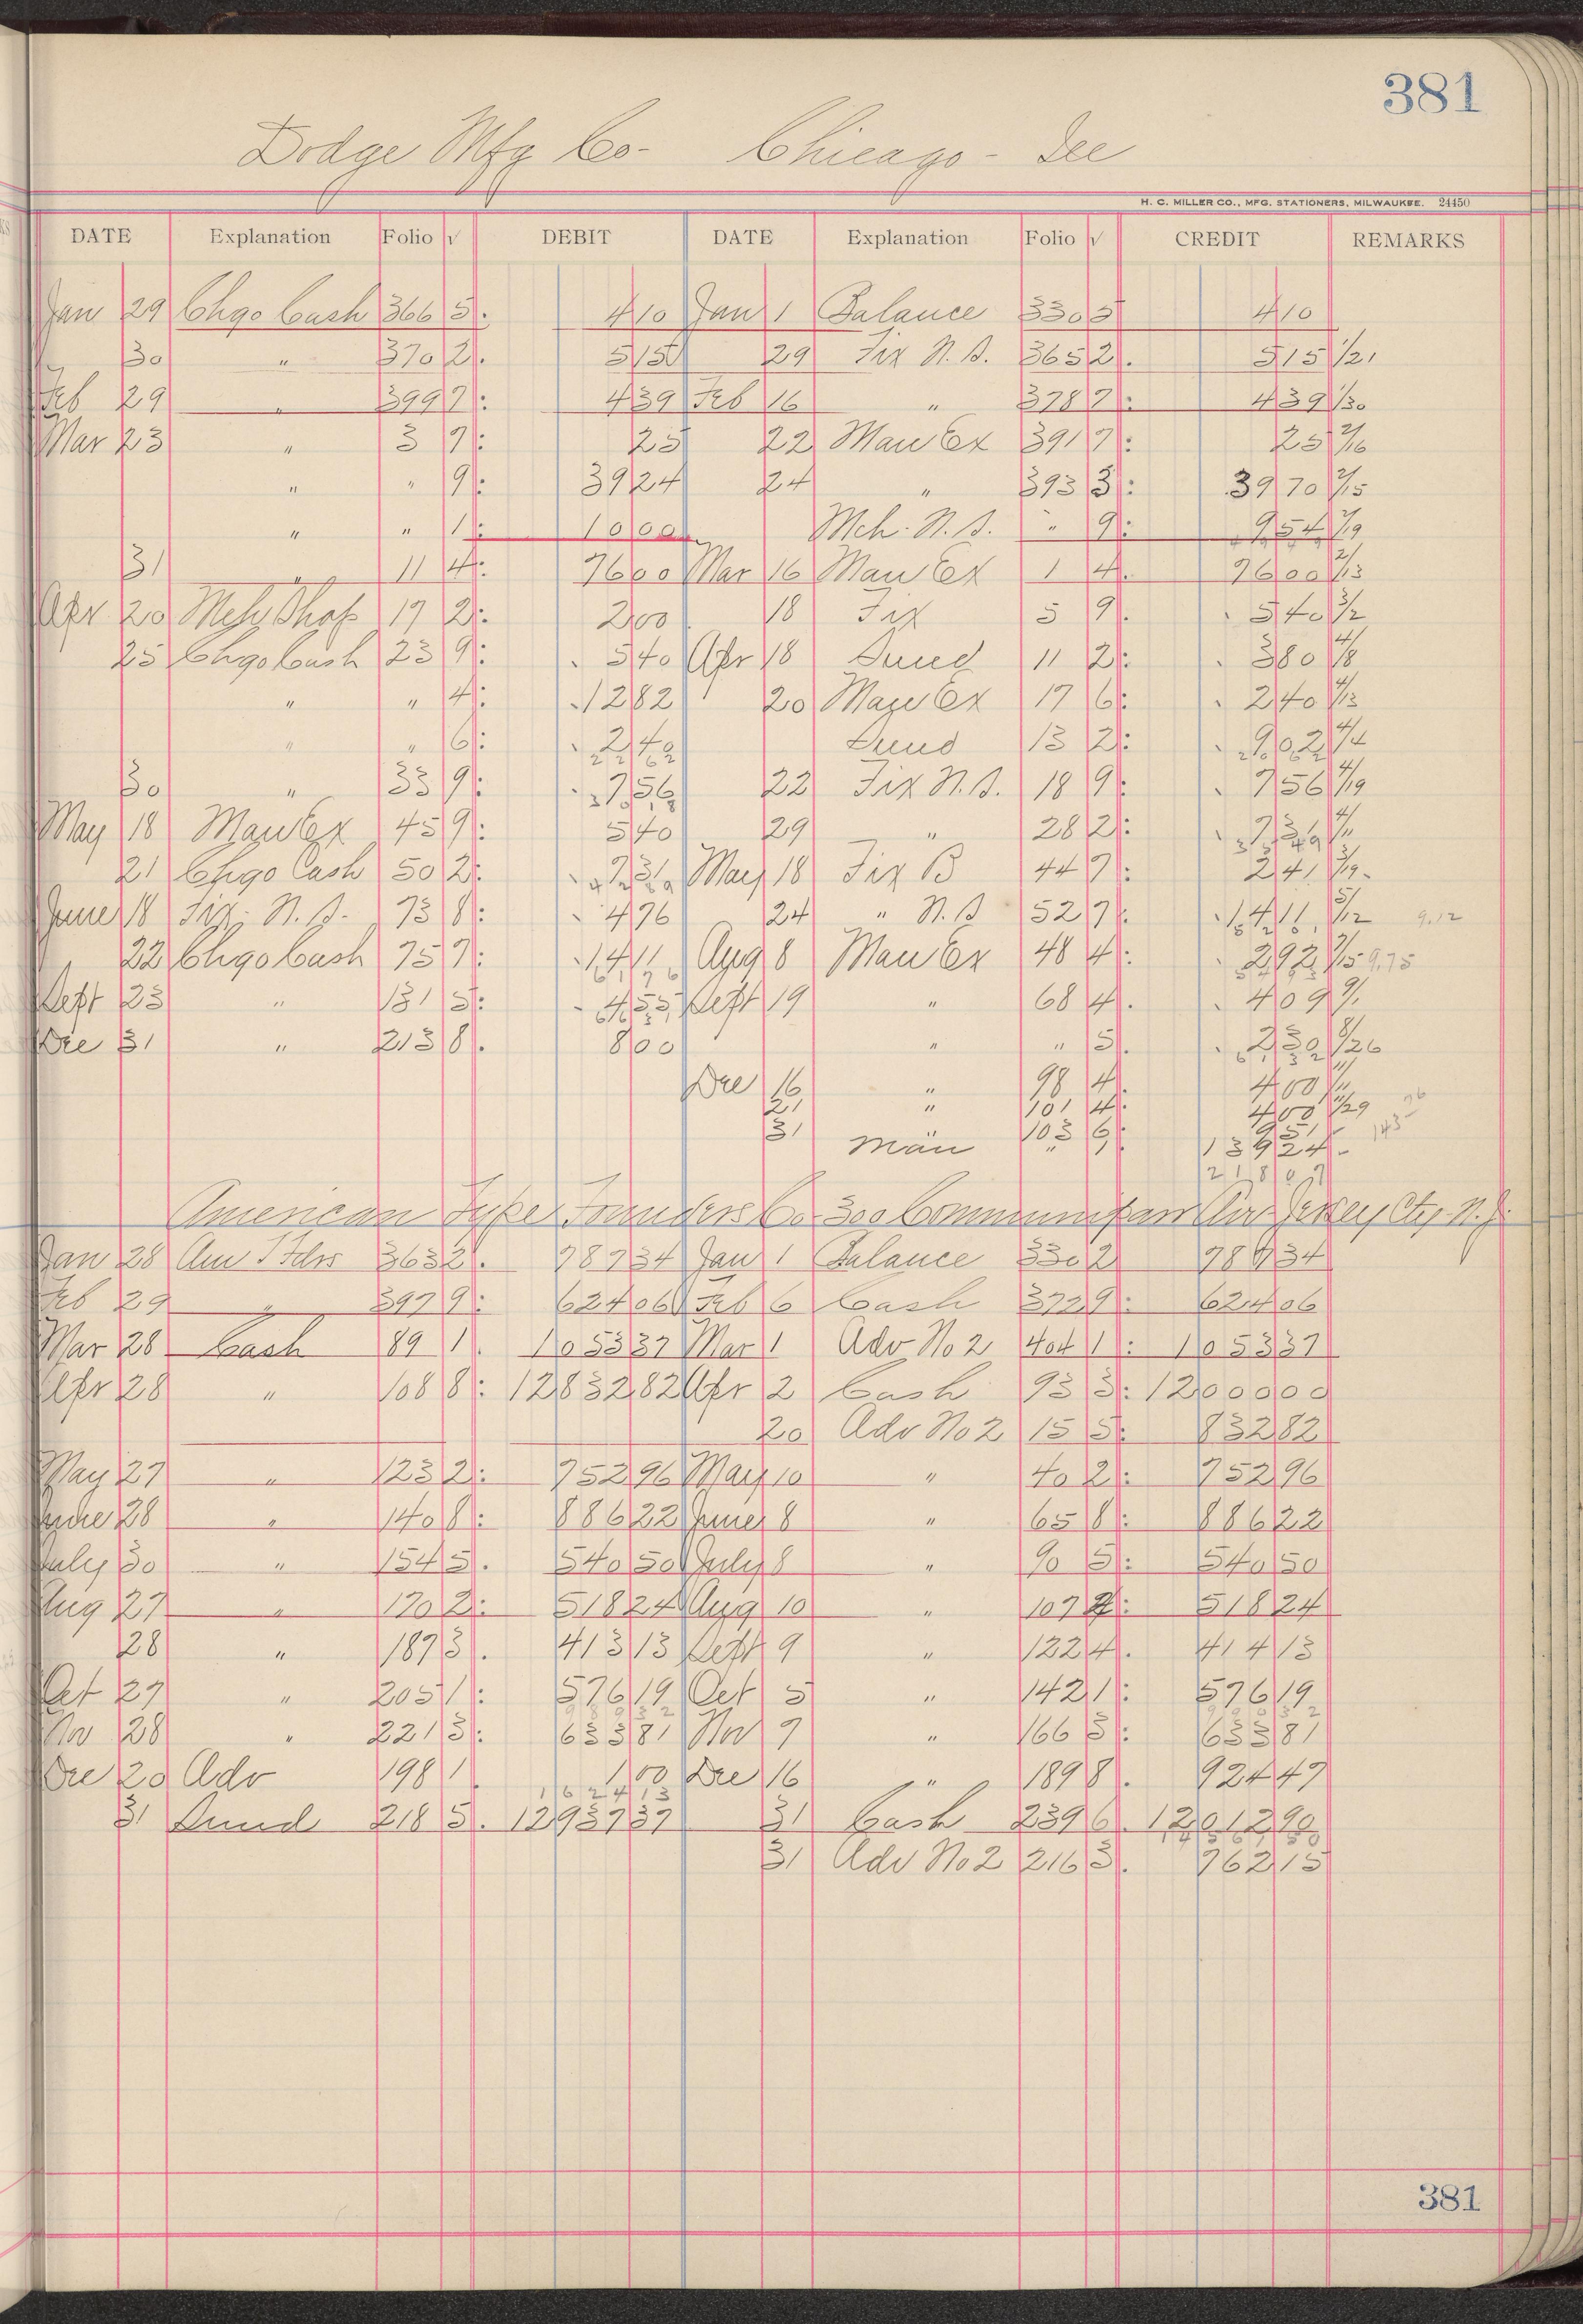 381
Dodge Mfg Co- Chicago - Ill
H. C. MILLER CO., MFG. STATIONERS, MILWAUKEE. 24450
DATE Explanation Folio √ DEBIT DATE Explanation Folio √ CREDIT REMARKS
Jan 29 Chgo Cash 366 5 4 10 Jan 1 Balance 330 5 4 10
30 " 370 2 5 15 29 Fix N.B. 365 2 5 15 1/21
Feb 29 " 399 7 4 39 Feb 16 " 378 7 4 39 1/30
Mar 23 " 3 7 25 22 Man Ex 391 7 25 2/16
" " 9 39 24 24 " 393 3 39 70 2/15
" " 1 10 00 Mch. N.B. " 9 9 54 2/19
31 " 11 4 76 00 Mar 16 Man Ex 1 4 76 00 2/13
Apr 20 17 2 2 00 18 Fix 5 9 5 40 3/2
25 Chgo Cash 23 9 5 40 Apr 18 Sund 11 2 3 80 4/8
" " 4 12 82 20 Man Ex 17 6 2 40 4/13
" " 6 2 40 Sund 13 2 9 02 4/2
30 " 33 9 7 56 22 Fix N.B. 18 9 7 56 4/19
May 18 Man Ex 45 9 5 40 29 " 28 2
21 Chgo Cash 50 2 May 18 Fix B 44 7 2 41
June 18 Fix. N.B. 73 8 4 76 24 " N.B 52 7 14 11 5/12 9.12
22 Chgo Cash 75 7 14 11 Aug 8 Man Ex 48 4 2 92 7/5 9.75
Sept 23 " 131 5 Sept 19 " 68 4 4 09
Dec 31 " 213 8 8 00 " " 5
Dec 16 " 98 4 4 00
21 " 101 4 4 00 11/29
31 Man 103 6 139 24
218 07
American Type Founders Co 300 Communipaw Ave Jersey Cty. N.J.
Jan 28 Am T Fdrs 363 2 787 34 Jan 1 Balance 330 2 787 34
Feb 29 " 397 9 624 06 Feb 6 Cash 372 9 624 06
Mar 28 Cash 89 1 1053 37 Mar 1 Adv No 2 404 1 1053 37
Apr 28 " 108 8 12832 82 Apr 2 Cash 93 3 12000 00
20 Adv No 2 15 5 832 82
May 27 " 123 2 752 96 May 10 " 40 2 752 96
June 28 " 140 8 886 22 June 8 " 65 8 886 22
July 30 " 154 5 540 50 July 8 " 90 5 540 50
Aug 27 " 170 2 518 24 Aug 10 " 107 7 518 24
28 " 187 3 413 13 Sept 9 " 122 4 414 13
Oct 27 " 205 1 576 19 Oct 5 " 142 1 576 19
Nov 28 " 221 3 633 81 Nov 7 " 166 3 633 81
Dec 20 Adv 198 1 1 00 Dec 16 " 189 8 924 47
31 Sund 218 5 12937 37 31 Cash 239 6 12012 90
31 Adv No 2 216 3 762 15
381